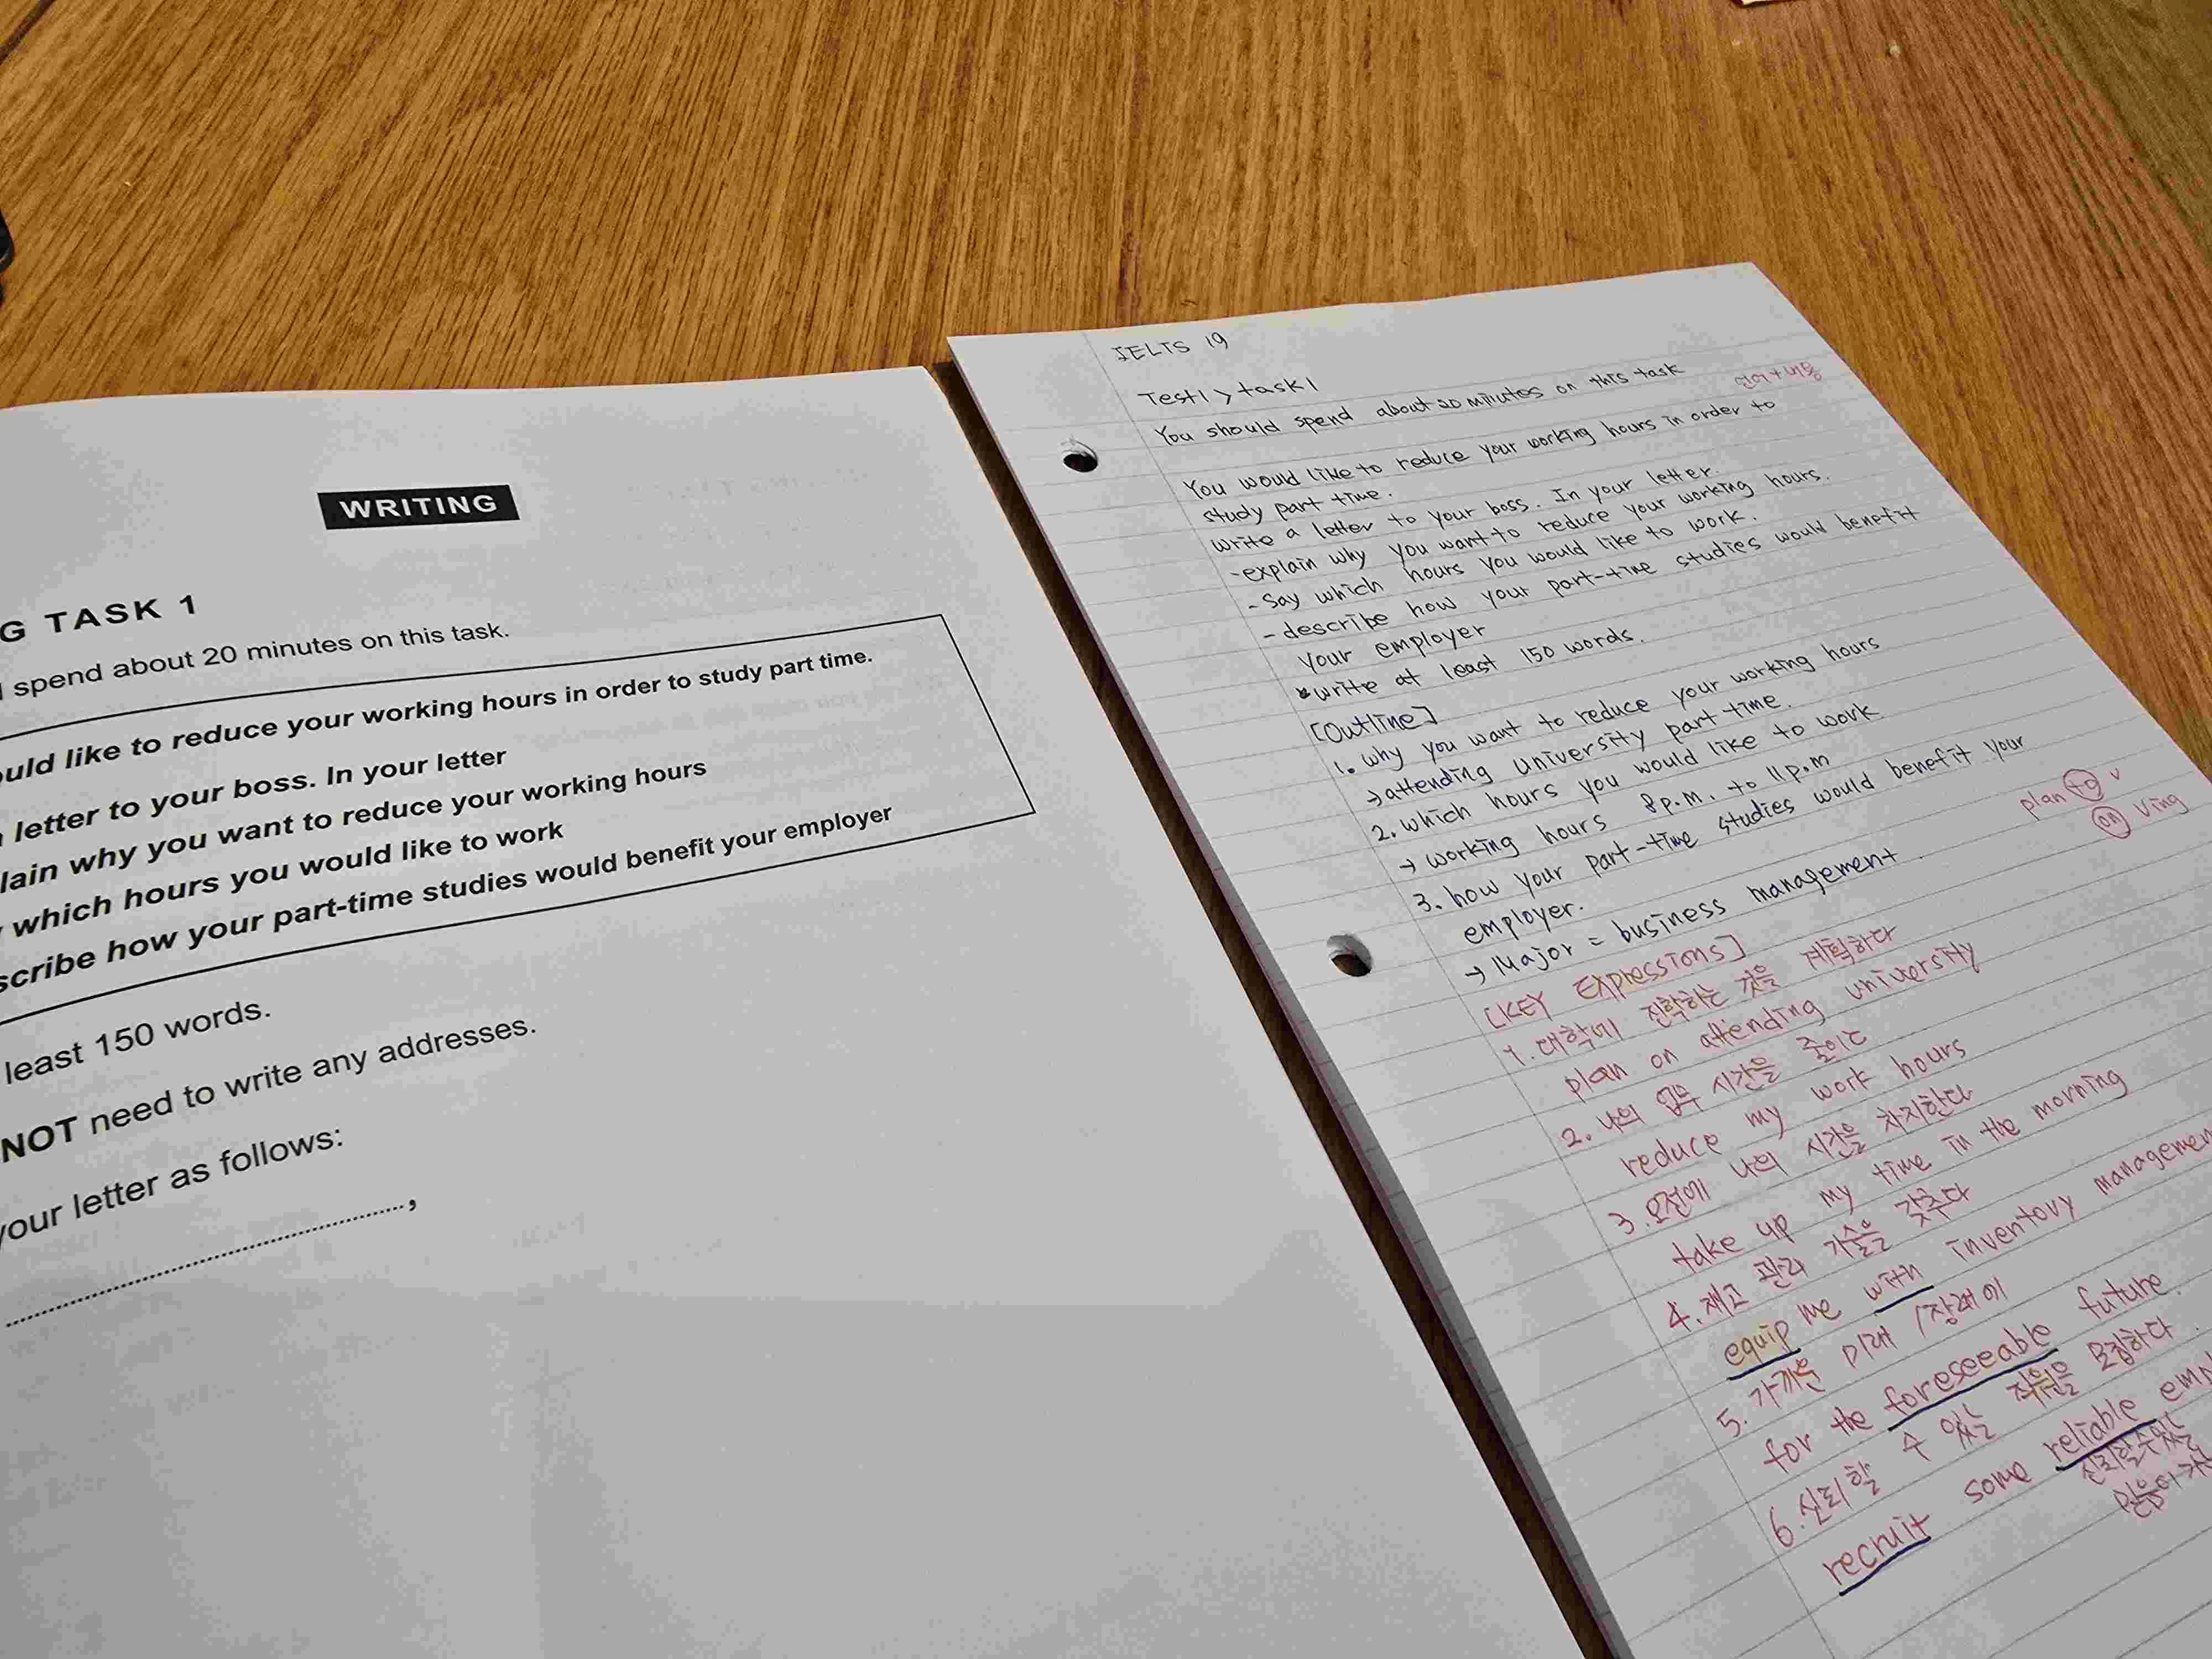 WRITING
G TASK 1
spend about 20 minutes on this task.
ould like to reduce your working hours in order to study part time.
letter to your boss. In your letter
lain why you want to reduce your working hours
which hours you would like to work
scribe how your part-time studies would benefit your employer
least 150 words.
NOT need to write any addresses.
your letter as follows:
....................................................,
IELTS 19
Test1 > task1
You should spend about 20 minutes on this task
언어+내용
You would like to reduce your working hours in order to
study part time.
write a letter to your boss. In your letter.
-explain why you want to reduce your working hours.
- Say which hours you would like to work.
- describe how your part-time studies would benefit
your employer
*write at least 150 words.
[Outline]
1. why you want to reduce your working hours
→ attending university part time.
2. which hours you would like to work
→ working hours 8p.m. to 11p.m
3. how your part-time studies would benefit your
employer.
→ Major = business management.
plan to v
on Ving
[KEY Expressions]
1. 대학에 진학하는 것을 계획하다
plan on attending university
2. 나의 업무 시간을 줄이다
reduce my work hours
3. 오전에 나의 시간을 차지한다
take up my time in the morning
4. 재고 관리 기술을 갖추다
equip me with inventory managemen
5. 가까운 미래 / 장래에
for the foreseeable future.
6. 신뢰할 수 있는 직원을 모집하다.
recruit some reliable emp
신뢰할수있는